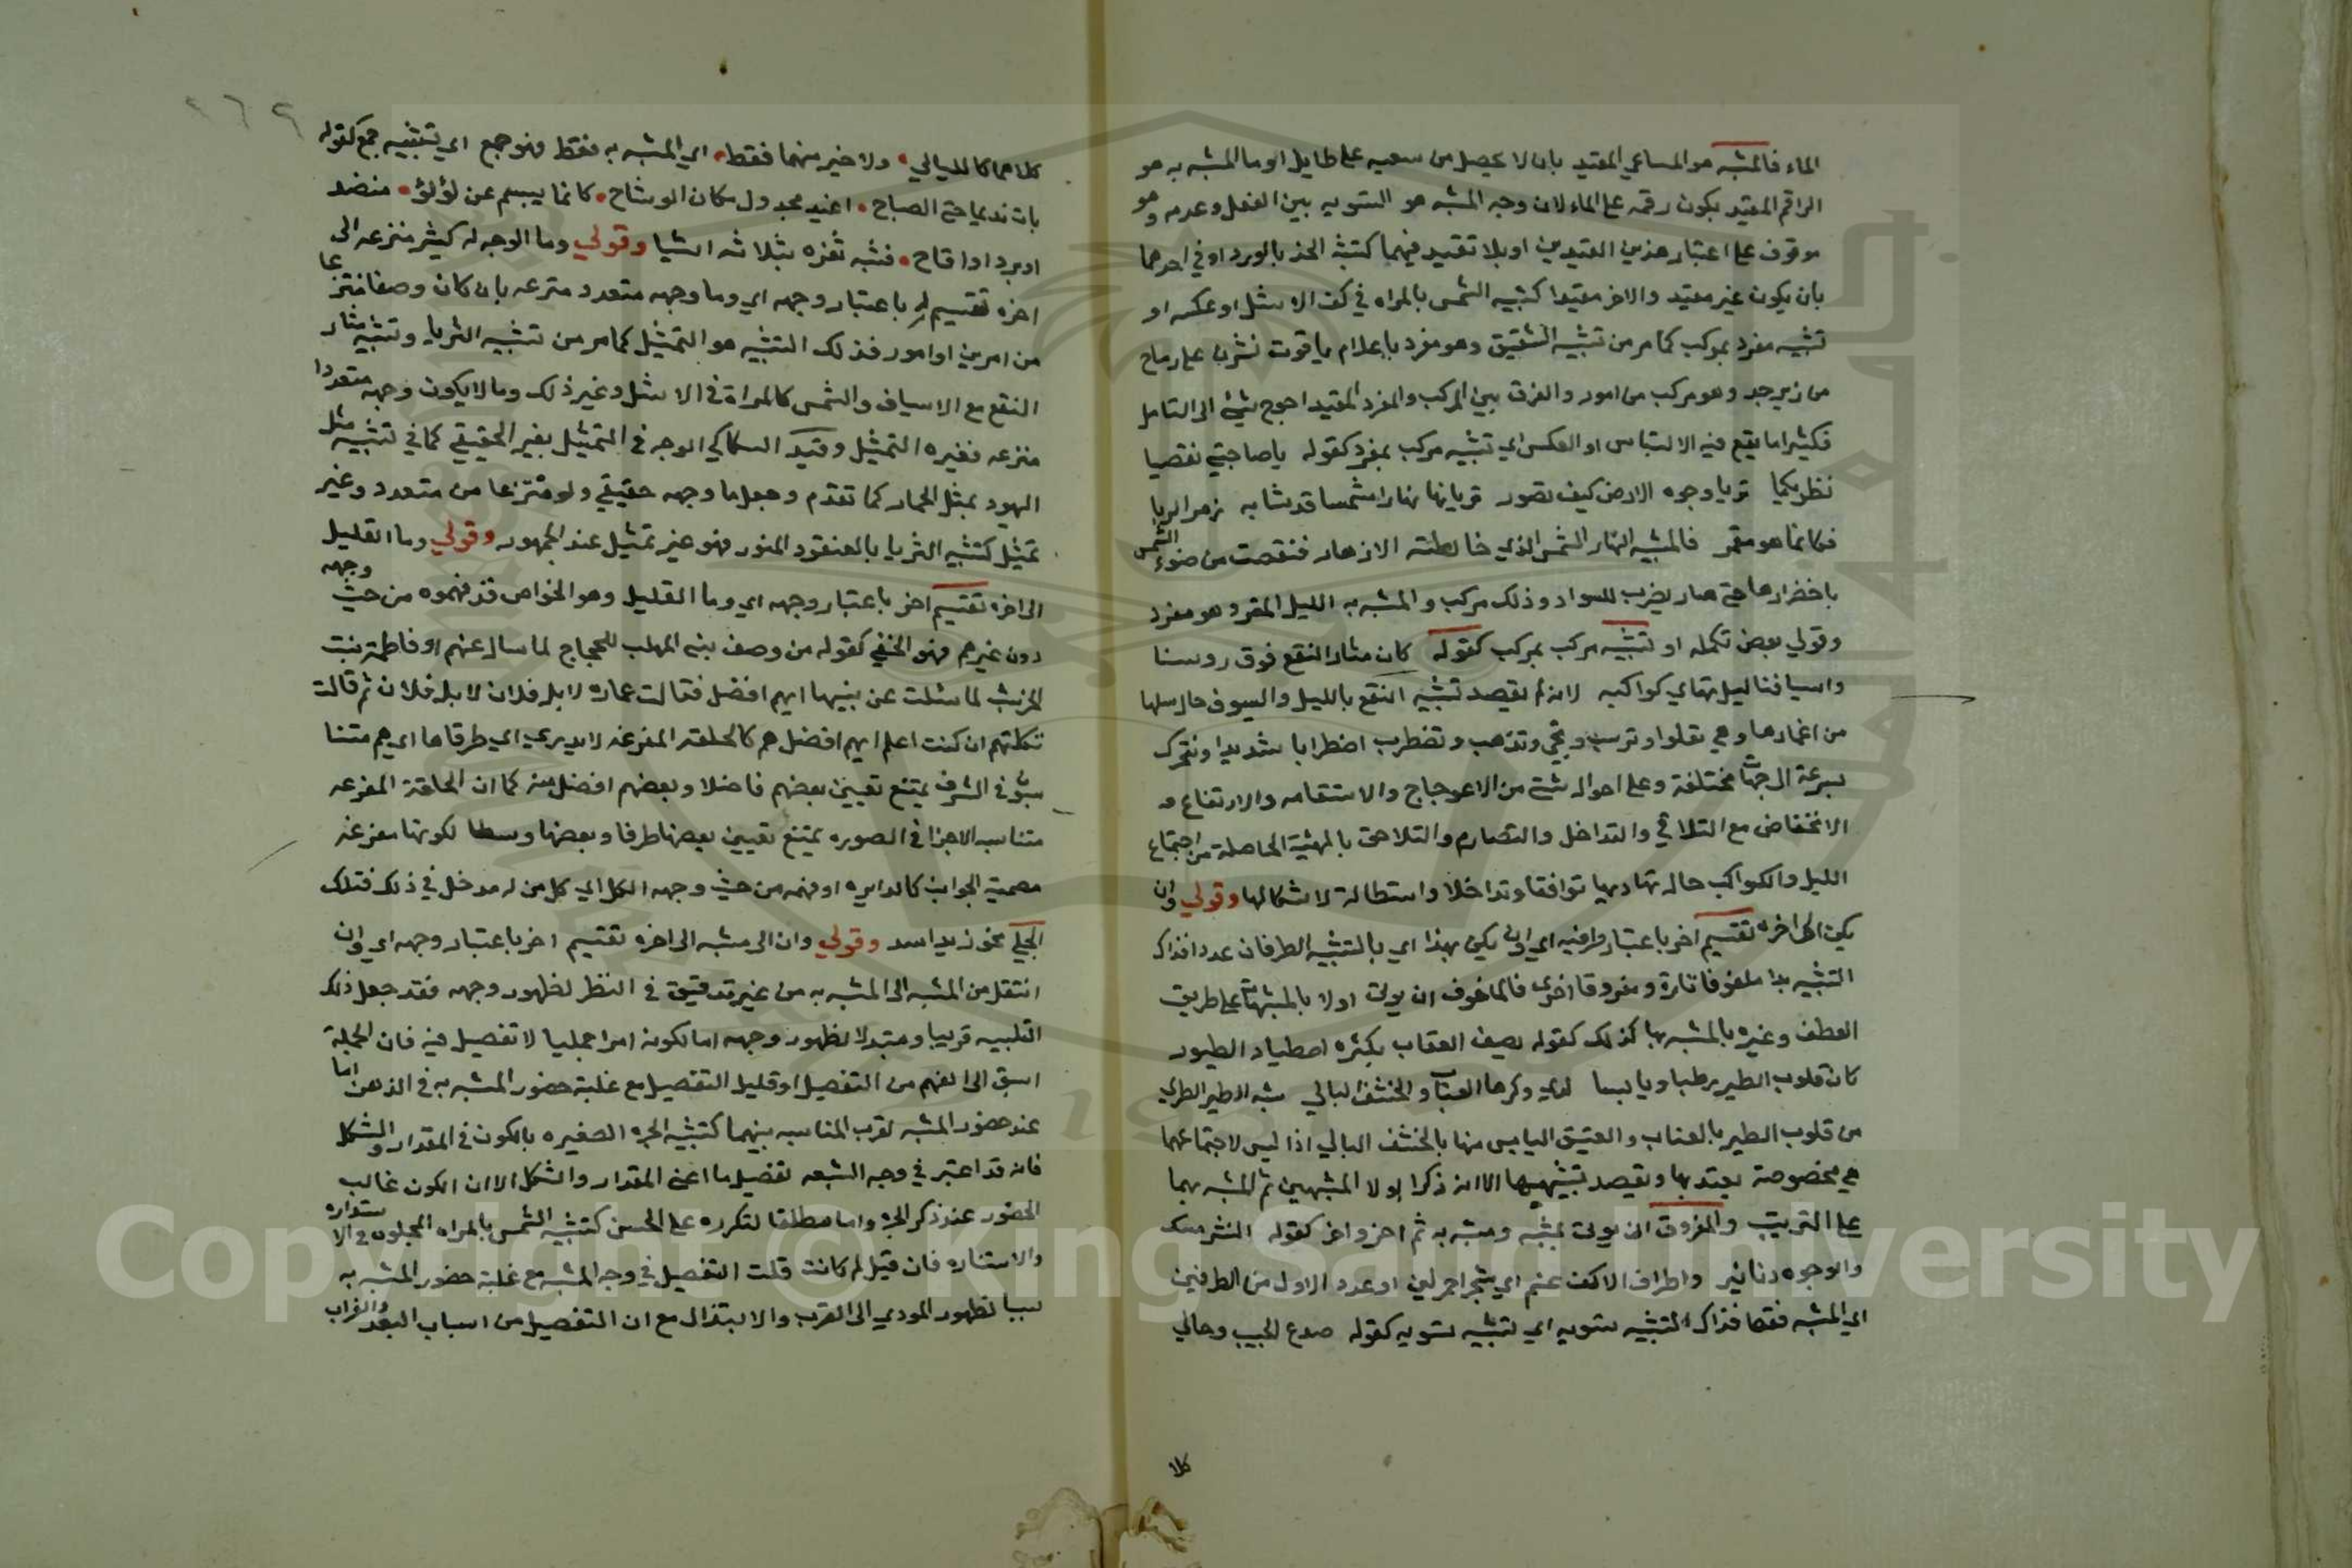 الماء فالمشبه هو الساعي المقيد بان لا يحصل من سعيه على طايل او ما المشبه به هو
الراقم المقيد بكون رقمه على الماء لان وجه المشبه هو التسويه بين الفعل وعدمه وهو
موقوف على اعتبار هذين القيدين او بلا تقييد فيهما كتشبه الخد بالورد او في احدهما
بان يكون غير مقيد والاخر مقيدا كتشبيه الشمس بالمراه في كف الاشل او عكسه او
تشبيه مفرد بمركب كما مر من تشبيه الشقيق وهو مفرد باعلام ياقوت نشرن على رماح
من زبرجد وهو مركب من امور والفرق بين المركب والمفرد المقيد احوج شئ الى التامل
فكثيرا ما يقع فيه الالتباس او العكس اي تشبيه مركب بمفرد كقوله ياصاحبي تقصيا
نظريكما تريا وجوه الارض كيف تصور تريا نهارا مشمسا قد شابه زهر الربا
فكانما هو مقمر فالمشبه النهار الشمس الذي خالطته الازهار فنقصت من ضوء الشمس
باخضرارها حتى صار يضرب للسواد وذلك مركب والمشبه به الليل المقمر وهو مفرد
وقولي بعض تكمله او تشبيه مركب بمركب كقوله كان مثار النقع فوق روسنا
واسيافنا ليل تهاوي كواكبه لانه لم يقصد تشبيه النقع بالليل والسيوف حال سلها
من اغمادها وهي تعلوا وترسب وتجي وتذهب وتضطرب اضطرابا شديدا وتتحرك
بسرعة الى جهات مختلفة وعلى احوال شتى من الاعوجاج والاستقامه والارتفاع و
الانخفاض مع التلاقي والتداخل والتصادم والتلاحق بالهيئة الحاصلة من اجتماع
الليل والكواكب حاله تهاديها توافقا وتداخلا واستطالة لاشكالها وقولي وان
يكن الى اخره تقسيم اخر باعتبار طرفيه اي ان يكن بهذا اي بالتشبيه الطرفان عددا فذاك
التشبيه بدا ملفوفا تارة ومفروقا اخرى فالملفوف ان يوتى اولا بالمشبهات على طريق
العطف وغيره بالمشبه بها كذلك كقوله يصف العقاب بكثره اصطياد الطيور
كان قلوب الطير رطبا ويابسا لدى وكرها العناب والخشف البالي شبه الطير الطري
من قلوب الطير بالعناب والعتيق اليابس منها بالخشف البالي اذ ليس لاجتماعهما
هي مخصوصة يعتد بها ويقصد تشبيهها الا انه ذكر اولا المشبهين ثم المشبه بهما
على الترتيب والمفروق ان يوتى بمشبه ومشبه به ثم اخر واخر كقوله النشر مسك
والوجوه دنانير واطراف الاكف عنم اي شجر احمر لين او عدد الاول من الطرفين
اي المشبه فقط فذاك التشبيه تسويه اي تشبيه تسويه كقوله صدغ الحبيب وحالي
كلا
٢٦٢
كلاهما كالليالي ولا خير منهما فقط اي المشبه به فقط فهو جمع اي تشبيه جمع كقوله
بات نديما حتى الصباح اغيد مجدول مكان الوشاح كانما يبسم عن لؤلؤ منضد
او برد او اقاح فشبه ثغره بثلاثه اشيا وقولي وما الوجه له كيثر منتزعه الى
اخره تقسيم له باعتبار وجهه اي وما وجهه متعدد منتزعه بان كان وصفا منتزعا
من امرين او امور فذلك التشبيه هو التمثيل كما مر من تشبيه الثريا وتشبيه مثار
النقع مع الاسياف والشمس كالمراة في الاشل وغير ذلك وما لا يكون وجهه متعددا
منتزعه فغيره التمثيل وقيد السكاكي الوجه في التمثيل بغير الحقيقي كما في تشبيه مثل
اليهود بمثل الحمار كما تقدم وجعل ما وجهه حقيقي ولو منتزعا من متعدد وغير
تمثيل كتشبيه الثريا بالعنقود المنور فهو غير تمثيل عند الجمهور وقولي وما القليل
الى اخره تقسيم اخر باعتبار وجهه اي وما القليل وهو الخواص قد فهموه من حيث وجهه
دون غيرهم فهو الخفي كقوله من وصف بني المهلب للحجاج لما سال عنهم او فاطمة بنت
الخرشب لما سئلت عن بنيها ايهم افضل فقالت عماره لا بل فلان لا بل فلان ثم قالت
ثكلتهم ان كنت اعلم ايهم افضل هم كالحلقه المفرغه لا يدري اي طرفاها اي هم متنا
سبون في الشرف يمتنع تعيين بعضهم فاضلا وبعضهم افضل منه كما ان الحلقة المفرغه
متناسبه الاجزا في الصوره يمتنع تعيين بعضها طرفا وبعضها وسطا لكونها مفرغه
مصمتة الجوانب كالدايره او فهمه من حيث وجهه الكل اي كل من له مدخل في ذلك فتلك
الجلي نحو زيد اسد وقولي وان الى مشبه الى اخره تقسيم اخر باعتبار وجهه اي وان
انتقل من المشبه الى المشبه به من غير تدقيق في النظر لظهور وجهه فقد جعل ذلك
التشبيه قريبا ومبتدلا لظهور وجهه اما لكونه امرا جمليا لا تفصيل فيه فان الجملة
اسبق الى الفهم من التفصيل او قليل التفصيل مع غلبة حضور المشبه به في الذهن اما
عند حضور المشبه لقرب المناسبه بينهما كتشبيه الجره الصغيره بالكوز في المقدار والشكل
فانه قد اعتبر في وجه الشبه تفصيل ما اعني المقدار والشكل الا ان الكوز غالب
الحضور عند ذكر الجره واما مطلقا لتكرره على الحس كتشبيه الشمس بالمراه المجلوه في الاستداره
والاستناره فان قيل لم كانت قلت التفصيل في وجه المشبه مع غلبة حضور المشبه به
سببا لظهور المودي الى القرب والابتذال مع ان التفصيل من اسباب البعد والغراب
Copyright © King Saud University